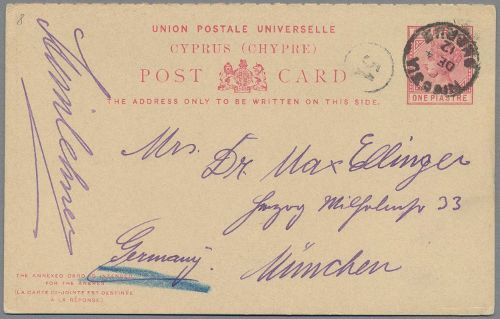 8
UNION POSTALE UNIVERSELLE
CYPRUS (CHYPRE)
POST CARD
THE ADDRESS ONLY TO BE WRITTEN ON THIS SIDE.
ONE PIASTRE
Mrs. Dr. Max Ellinger
Herzog Wilhelmstr 33
Germany.
München
THE ANNEXED CARD IS INTENDED
FOR THE ANSWER
(LA CARTE CI-JOINTE EST DESTINÉE
À LA RÉPONSE)